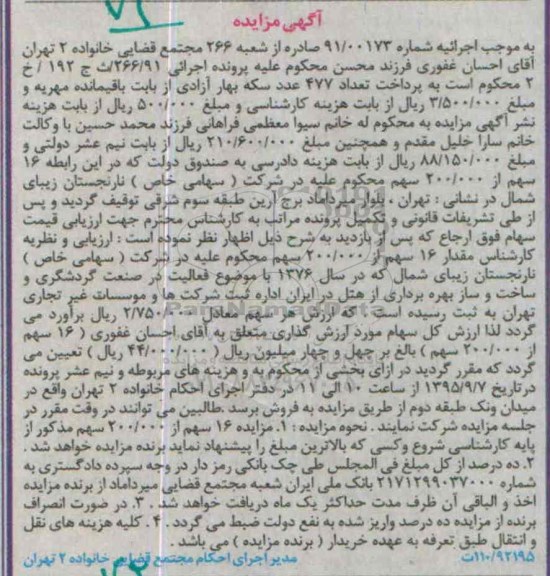 آگهی مزایده
به موجب اجرائیه شماره ۹۱/۰۰۱۷۳ صادره از شعبه ۲۶۶ مجتمع قضایی خانواده ۲ تهران
آقای احسان غفوری فرزند محسن محکوم علیه پرونده اجرائی ۲۶۶/۹۱/ث ج ۱۹۲ / خ
۲ محکوم است به پرداخت تعداد ۴۷۷ عدد سکه بهار آزادی از بابت باقیمانده مهریه و
مبلغ ۳/۵۰۰/۰۰۰ ریال از بابت هزینه کارشناسی و مبلغ ۵۰۰/۰۰۰ ریال از بابت هزینه
نشر آگهی مزایده به محکوم له خانم سیوا معظمی فراهانی فرزند محمد حسین با وکالت
خانم سارا خلیل مقدم و همچنین مبلغ ۲۱۰/۶۰۰/۰۰۰ ریال از بابت نیم عشر دولتی و
مبلغ ۸۸/۱۵۰/۰۰۰ ریال از بابت هزینه دادرسی به صندوق دولت که در این رابطه ۱۶
سهم از ۲۰۰/۰۰۰ سهم محکوم علیه در شرکت ( سهامی خاص ) نارنجستان زیبای
شمال در نشانی : تهران ، بلوار میرداماد برج آرین طبقه سوم شرقی توقیف گردید و پس
از طی تشریفات قانونی و تکمیل پرونده مراتب به کارشناس محترم جهت ارزیابی قیمت
سهام فوق ارجاع که پس از بازدید به شرح ذیل اظهار نظر نموده است : ارزیابی و نظریه
کارشناس مقدار ۱۶ سهم از ۲۰۰/۰۰۰ سهم محکوم علیه در شرکت ( سهامی خاص )
نارنجستان زیبای شمال که در سال ۱۳۷۶ با موضوع فعالیت در صنعت گردشگری و
ساخت و ساز بهره برداری از هتل در ایران اداره ثبت شرکت ها و موسسات غیر تجاری
تهران به ثبت رسیده است ، که ارزش هر سهم معادل ۲/۷۵۰/۰۰۰ ریال برآورد می
گردد لذا ارزش کل سهام مورد ارزش گذاری متعلق به آقای احسان غفوری ( ۱۶ سهم
از ۲۰۰/۰۰۰ سهم ) بالغ بر چهل و چهار میلیون ریال ( ۴۴/۰۰۰/۰۰۰ ریال ) تعیین می
گردد که مقرر گردید در ازای بخشی از محکوم به و هزینه های مربوطه و نیم عشر پرونده
درتاریخ ۱۳۹۵/۹/۷ از ساعت ۱۰ الی ۱۱ در دفتر اجرای احکام خانواده ۲ تهران واقع در
میدان ونک طبقه دوم از طریق مزایده به فروش برسد .طالبین می توانند در وقت مقرر در
جلسه مزایده شرکت نمایند . نحوه مزایده : ۱. مزایده ۱۶ سهم از ۲۰۰/۰۰۰ سهم مذکور از
پایه کارشناسی شروع وکسی که بالاترین مبلغ را پیشنهاد نماید برنده مزایده خواهد شد .
۲. ده درصد از کل مبلغ فی المجلس طی چک بانکی رمز دار در وجه سپرده دادگستری به
شماره ۲۱۷۱۲۹۹۰۳۷۰۰۰ بانک ملی ایران شعبه مجتمع قضایی میرداماد از برنده مزایده
اخذ و الباقی آن ظرف مدت حداکثر یک ماه دریافت خواهد شد . ۳. در صورت انصراف
برنده از مزایده ده درصد واریز شده به نفع دولت ضبط می گردد . ۴ . کلیه هزینه های نقل
و انتقال طبق تعرفه به عهده خریدار ( برنده مزایده ) می باشد .
۱۱۰/۹۲۱۹۵ت مدیر اجرای احکام مجتمع قضایی خانواده ۲ تهران